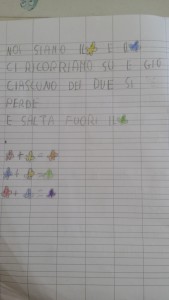 NOI SIAMO IL E IL
CI RICOPRIAMO SU E GIÙ
CIASCUNO DEI DUE SI
PERDE
E SALTA FUORI IL
+ =
+ =
+ =